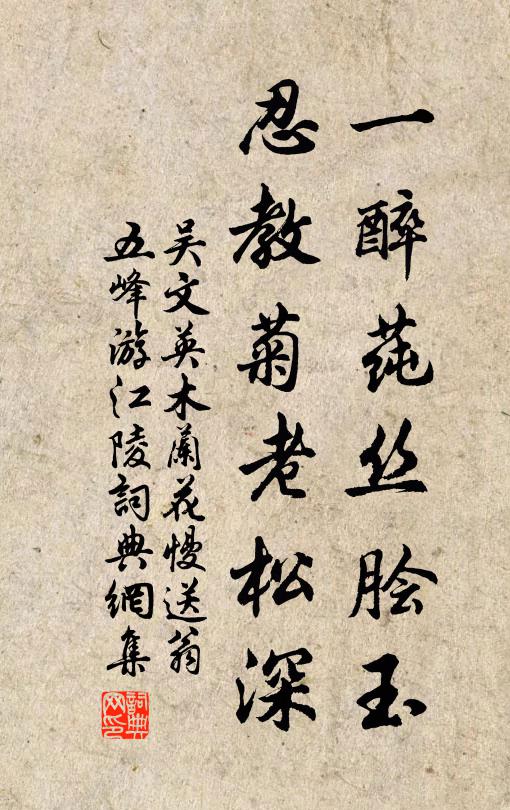 一醉莼丝脍玉
忍教菊老松深
吴文英木蘭花慢送翁
五峰游江陵詞典網集
詞典
网印